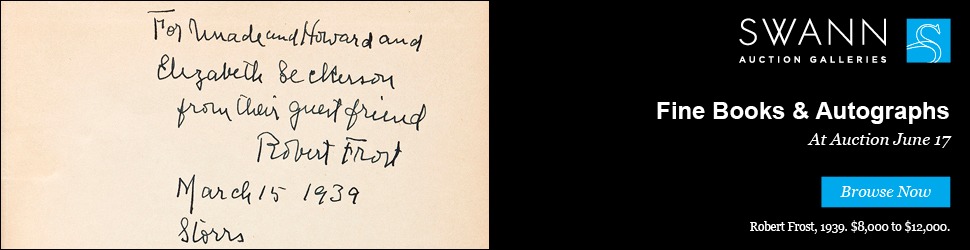 For Unade and Howard and
Elizabeth Seckerson
from their guest friend
Robert Frost
March 15 1939
Storrs
SWANN
AUCTION GALLERIES
Fine Books & Autographs
At Auction June 17
Browse Now
Robert Frost, 1939. $8,000 to $12,000.